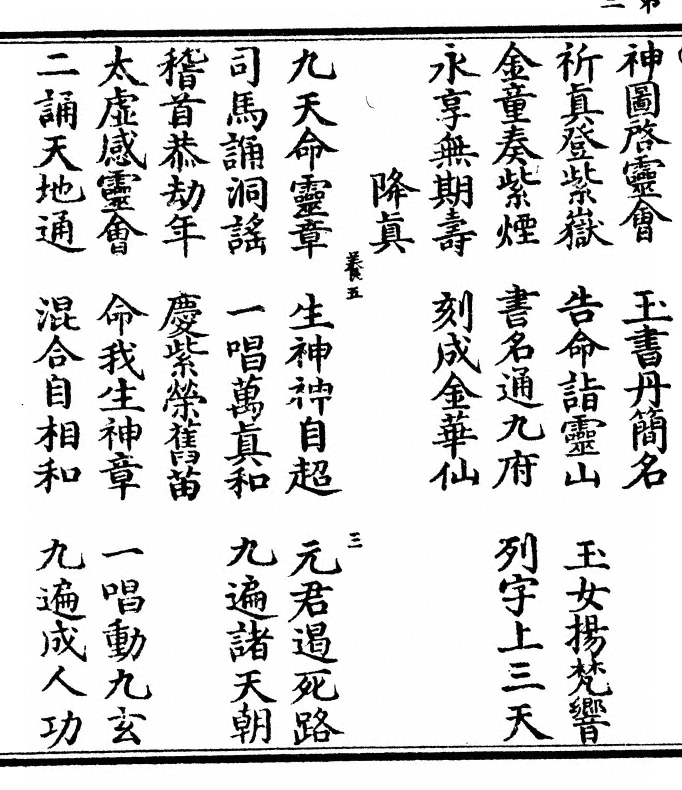 神圖啓靈會　玉書丹簡名
祈眞登紫嶽　告命詣靈山　玉女揚梵響
金童奏紫煙　書名通九府　列字上三天
永享無期壽　刻成金華仙
降眞
養五　三
九天命靈章　生神神自超　元君遏死路
司馬誦洞謠　一唱萬眞和　九遍諸天朝
稽首恭劫年　慶紫榮舊苗
太虛感靈會　命我生神章　一唱動九玄
二誦天地通　混合自相和　九遍成人功